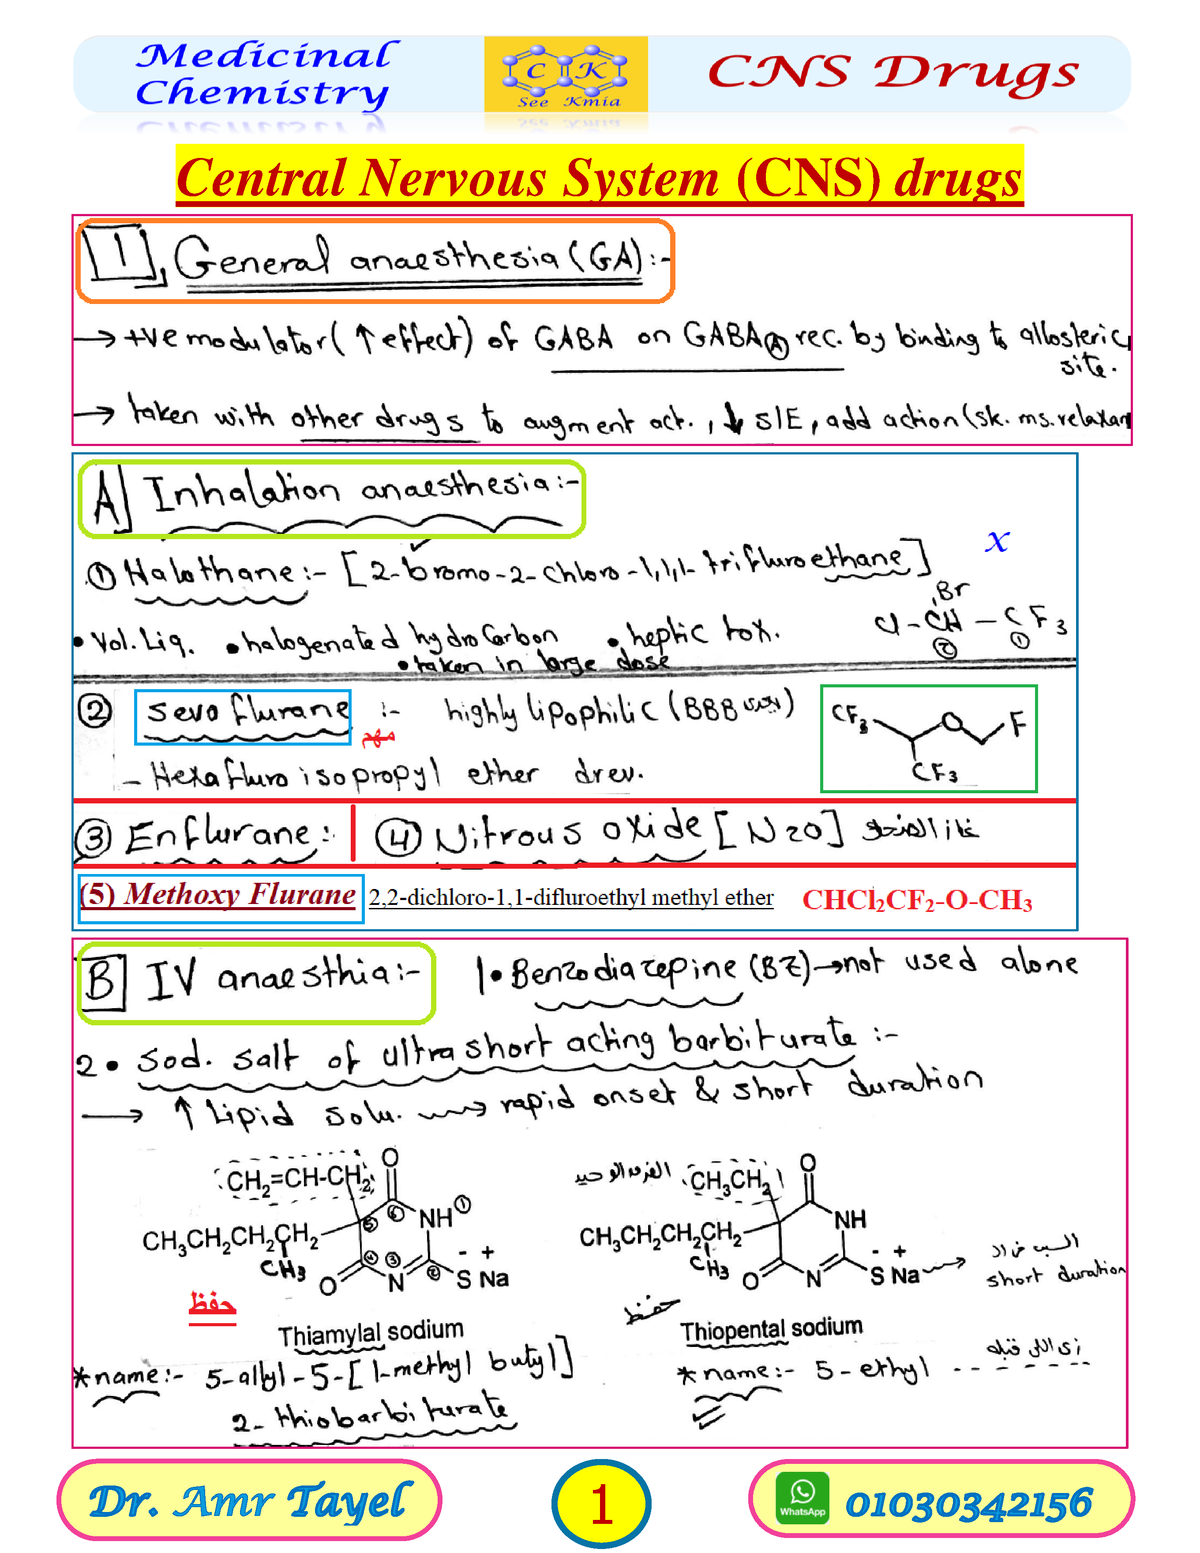 Medicinal
Chemistry
C K
See Kmia
CNS Drugs
Central Nervous System (CNS) drugs
1, General anaesthesia (GA):-
→ +ve modulator (↑ effect) of GABA on GABA(A) rec. by binding to allosteric
site.
→ taken with other drugs to augment act., ↓ S/E, add action (sk. ms. relaxan
A] Inhalation anaesthesia:-
x
① Halothane:- [2-bromo-2-chloro-1,1,1-trifluroethane]
Br
Cl-CH-CF3
② ①
• Vol. Liq. • halogenated hydrocarbon • heptic tox.
• taken in large dose
② sevoflurane :- highly lipophilic (BBB بتعدى)
مهم
CF3 O F
CF3
- Hexafluro isopropyl ether drev.
③ Enflurane:- ④ Nitrous oxide [N2O] غاز الضحك
(5) Methoxy Flurane 2,2-dichloro-1,1-difluroethyl methyl ether CHCl2CF2-O-CH3
B] IV anaesthia:- 1• Benzodiazepine (BZ) → not used alone
2• sod. salt of ultra short acting barbiturate :-
→ ↑ Lipid solu. → rapid onset & short duration
CH2=CH-CH2 O
CH3CH2CH2CH2 ⑤ ⑥ NH ①
CH3 ④ ③ ②
O N S Na - +
حفظ
Thiamylal sodium
*name:- 5-allyl-5-[1-methyl butyl]
2-thiobarbiturate
الفرق الوحيد CH3CH2 O
CH3CH2CH2CH2 NH
CH3
O N S Na - + → السبب في ال
short duration
حفظ
Thiopental sodium
*name:- 5-ethyl ------ زى اللى قبله
Dr. Amr Tayel
1
WhatsApp
01030342156